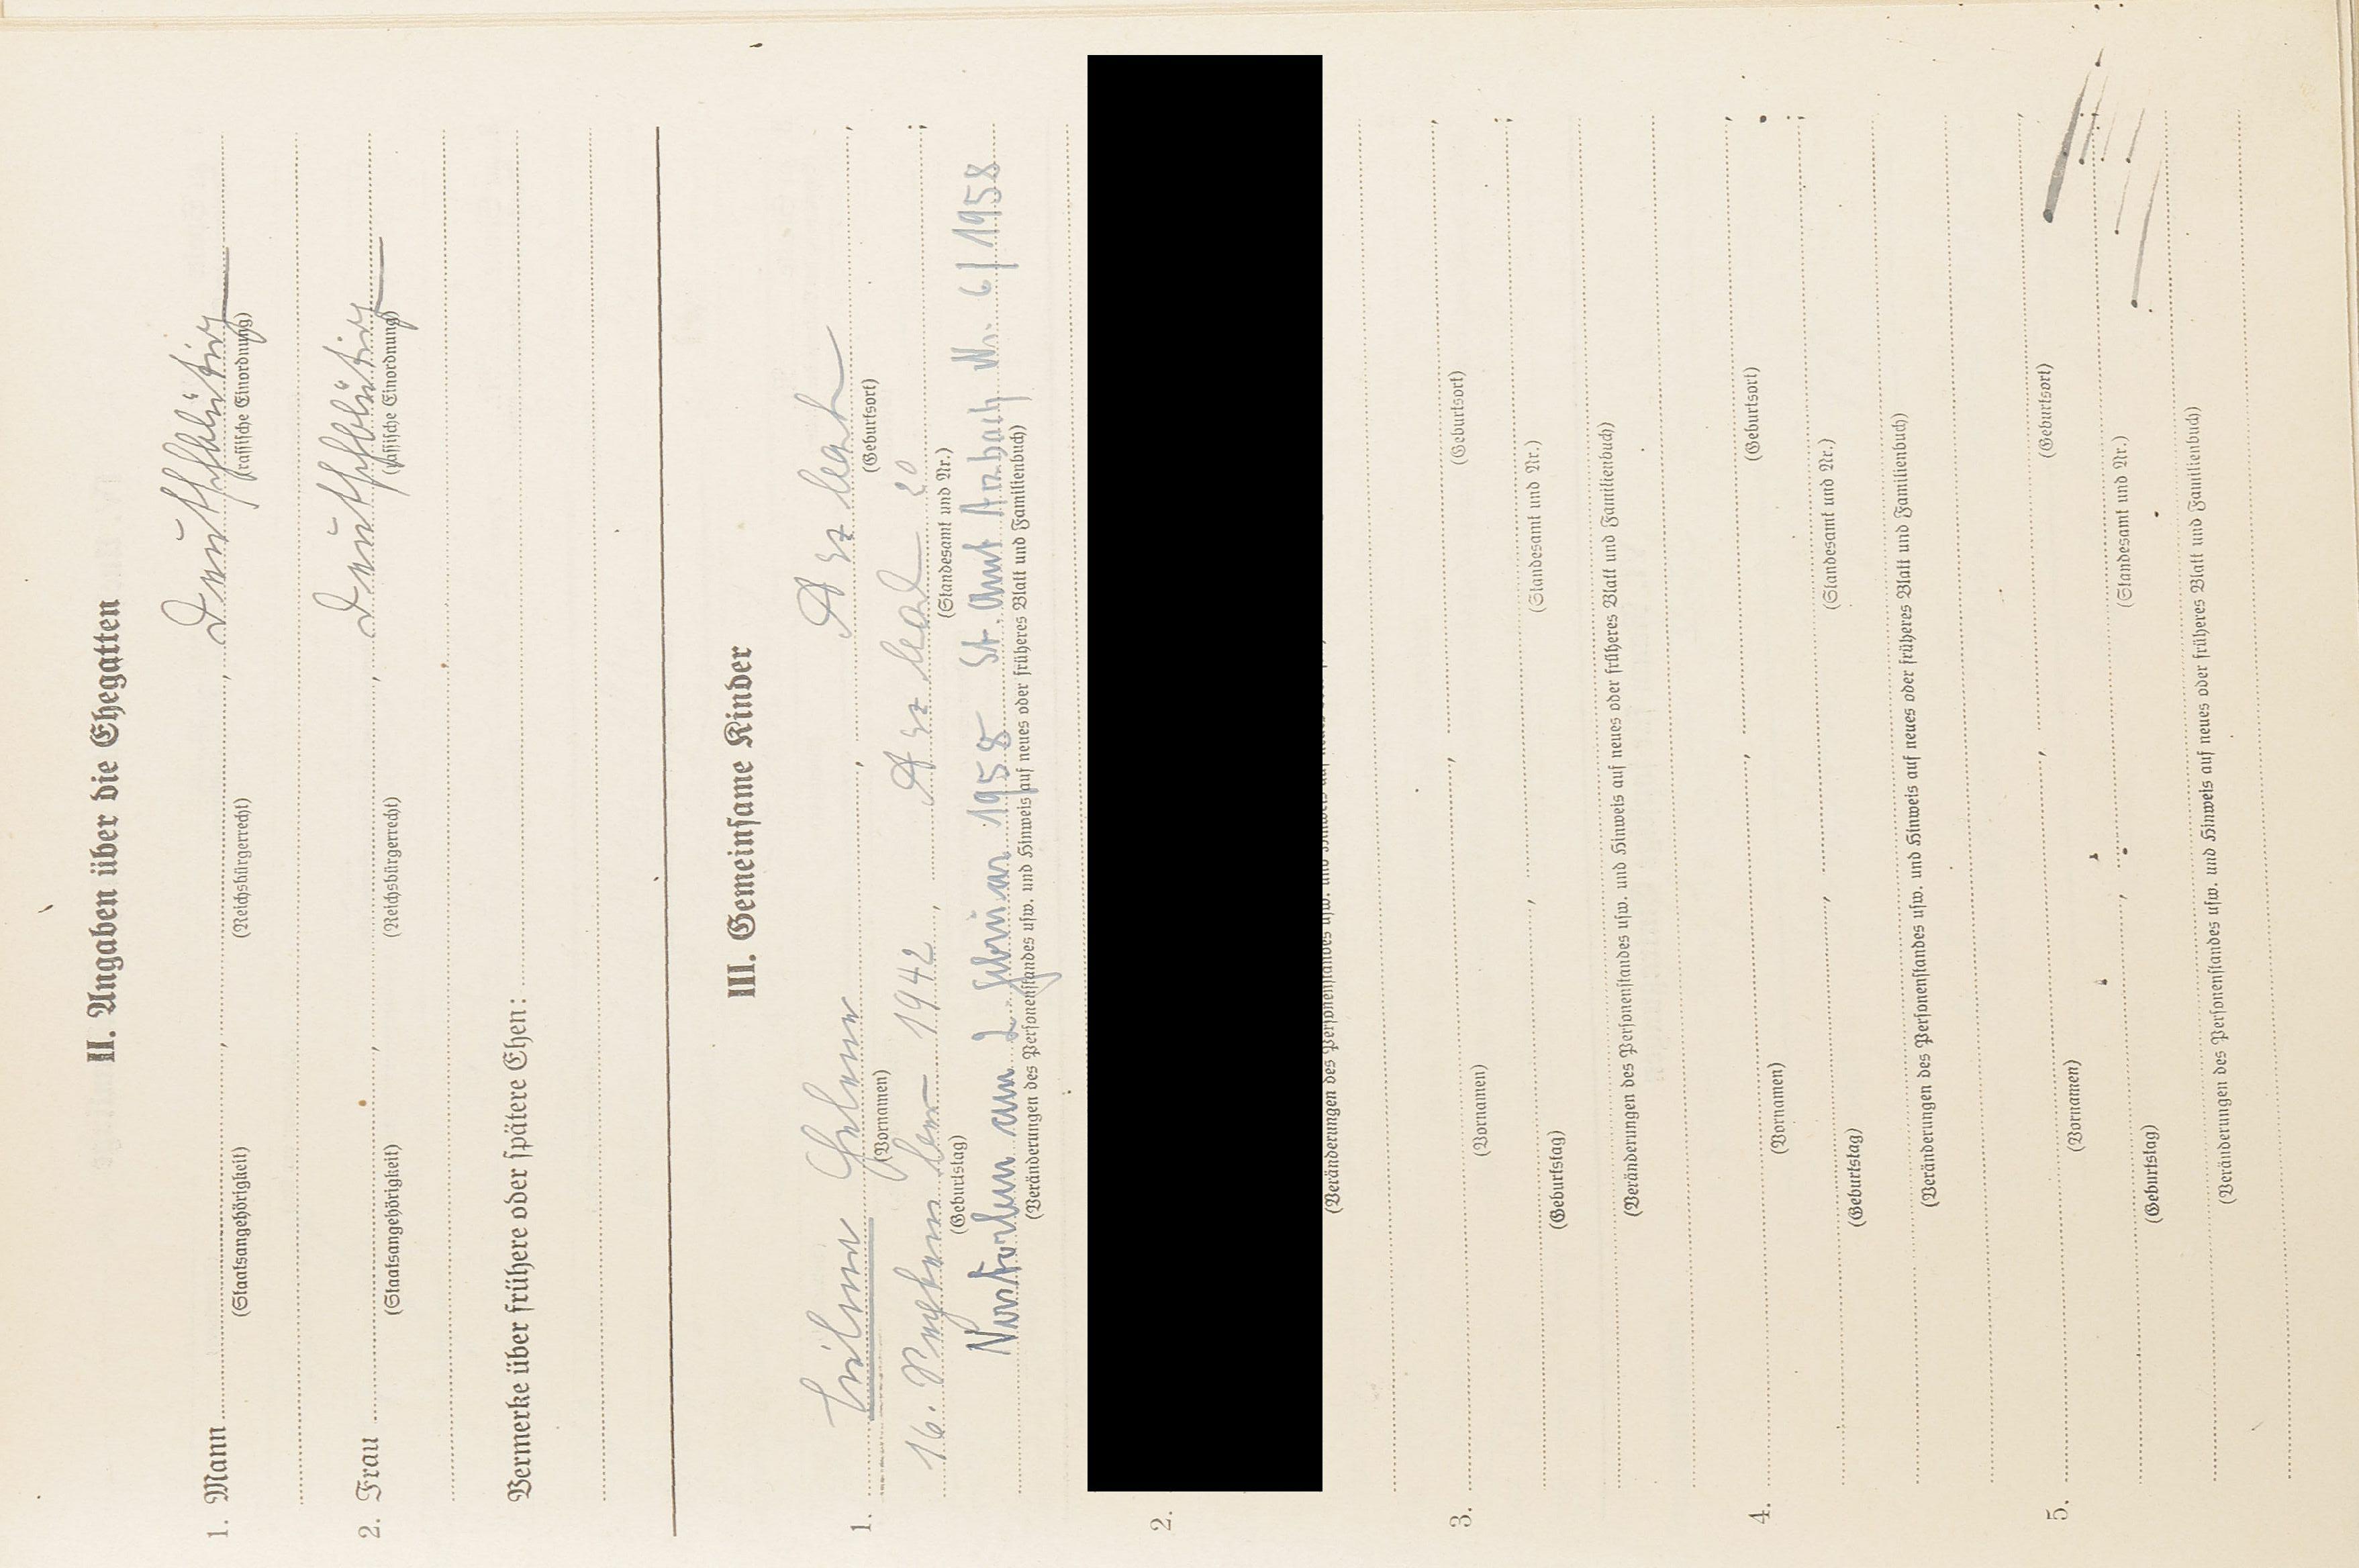 II. Angaben über die Ehegatten
1. Mann , , Deutschblütig
(Staatsangehörigkeit) (Reichsbürgerrecht) (rassische Einordnung)
2. Frau , , Deutschblütig
(Staatsangehörigkeit) (Reichsbürgerrecht) (rassische Einordnung)
Vermerke über frühere oder spätere Ehen:
III. Gemeinsame Kinder
1. Helene , Arzbach ,
(Vornamen) (Geburtsort)
16. September 1942 , Arzbach 20 ;
(Geburtstag) (Standesamt und Nr.)
Verstorben am 2. Februar 1958 St. Amt Arzbach Nr. 6/1958
(Veränderungen des Personenstandes usw. und Hinweis auf neues oder früheres Blatt und Familienbuch)
2.
(Veränderungen des Personenstandes usw. und Hinweis auf neues
3. , ,
(Vornamen) (Geburtsort)
, ;
(Geburtstag) (Standesamt und Nr.)
(Veränderungen des Personenstandes usw. und Hinweis auf neues oder früheres Blatt und Familienbuch)
4. , ,
(Vornamen) (Geburtsort)
, ;
(Geburtstag) (Standesamt und Nr.)
(Veränderungen des Personenstandes usw. und Hinweis auf neues oder früheres Blatt und Familienbuch)
5. , ,
(Vornamen) (Geburtsort)
, ;
(Geburtstag) (Standesamt und Nr.)
(Veränderungen des Personenstandes usw. und Hinweis auf neues oder früheres Blatt und Familienbuch)